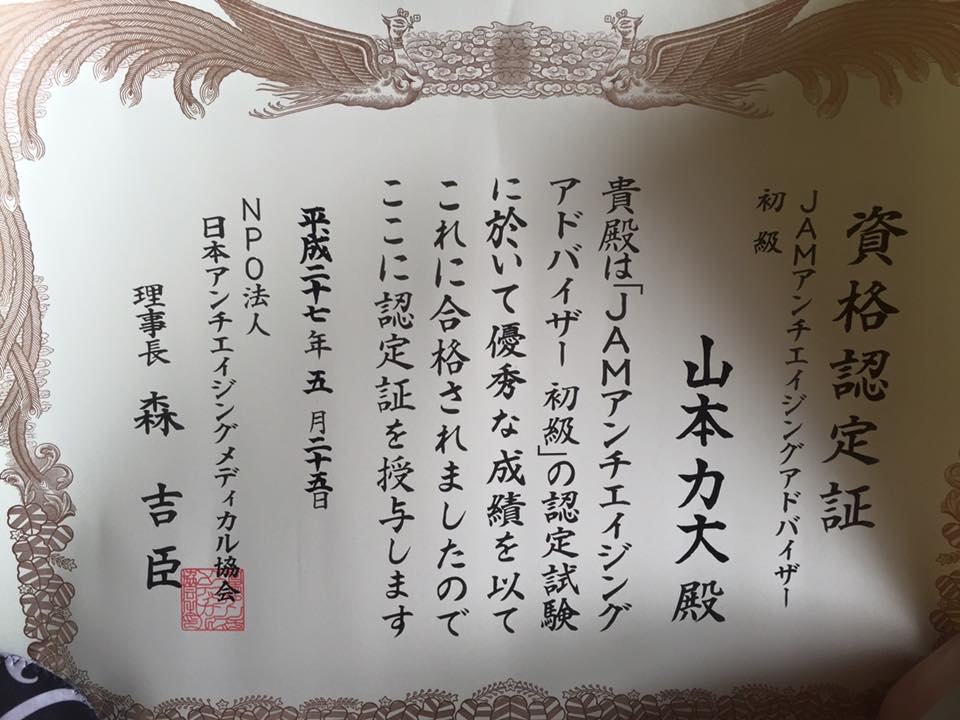 資格認定証
JAMアンチエイジングアドバイザー
初級
山本力大殿
貴殿は「JAMアンチエイジング
アドバイザー 初級」の認定試験
に於いて優秀な成績を以て
これに合格されましたので
ここに認定証を授与します
平成二十七年 五 月二十五日
NPO法人
日本アンチエイジングメディカル協会
理事長 森 吉臣